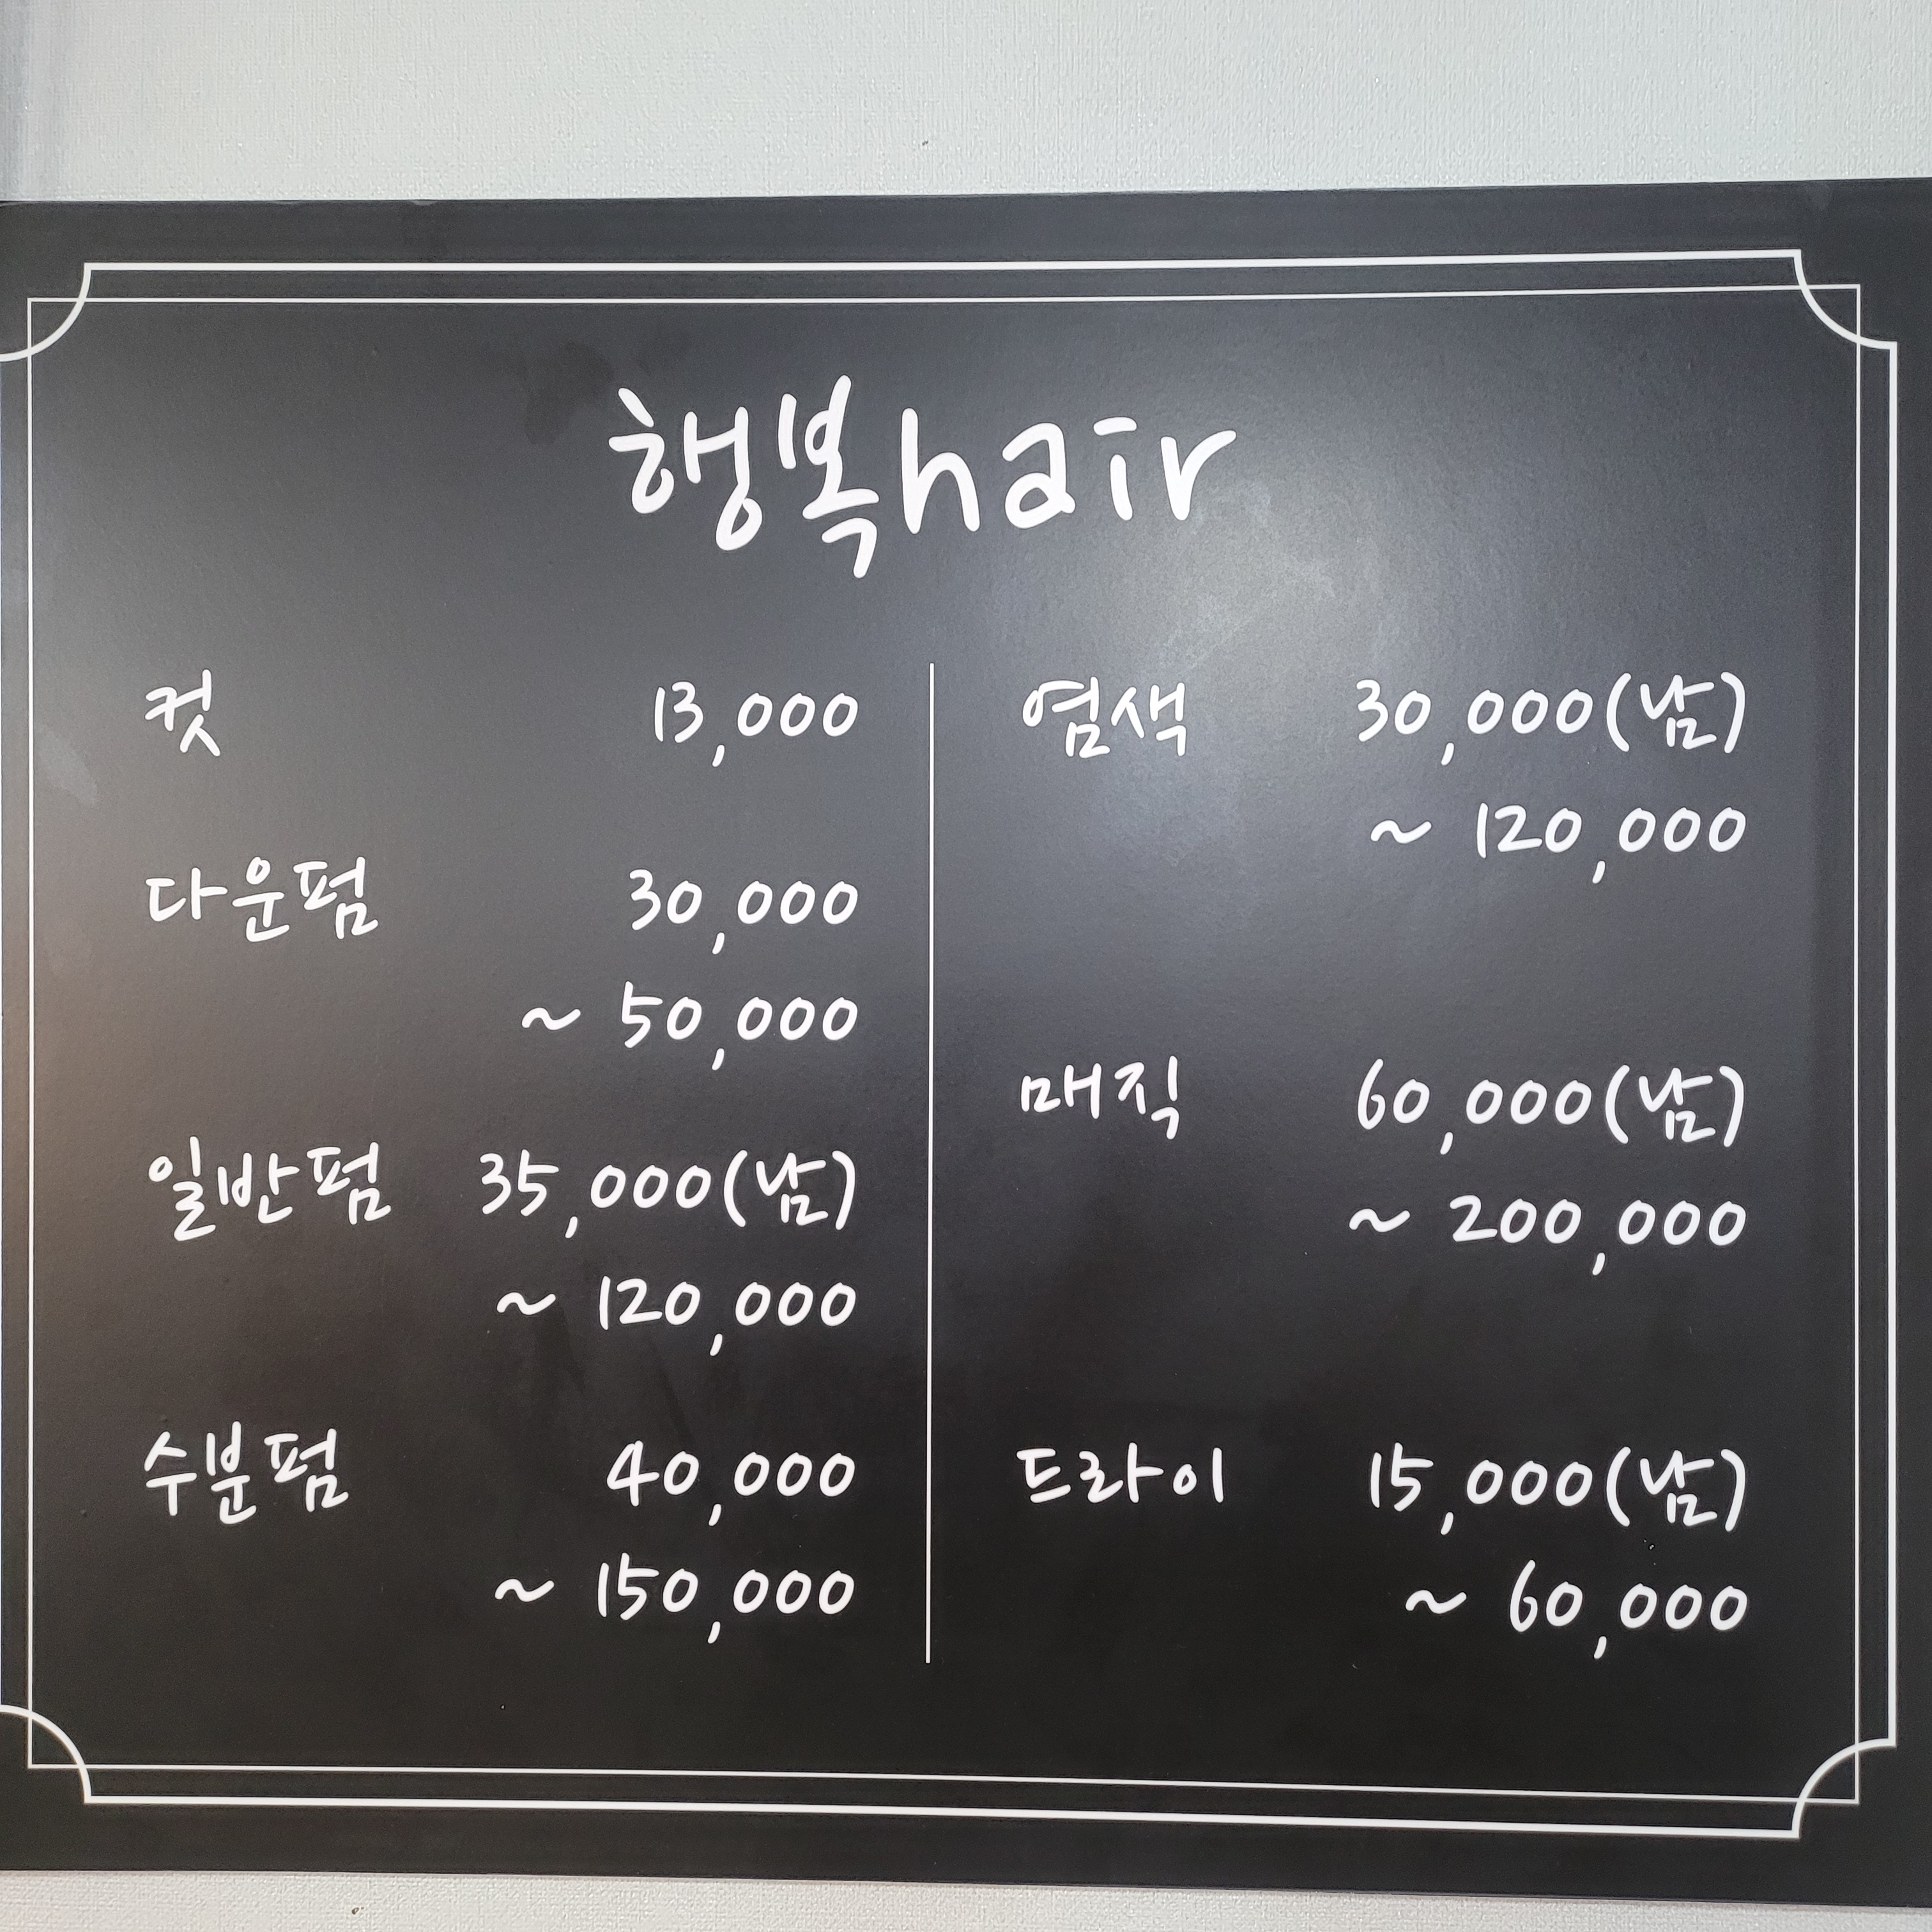 행복hair
컷 13,000
다운펌 30,000
~ 50,000
일반펌 35,000(남)
~ 120,000
수분펌 40,000
~ 150,000
염색 30,000(남)
~ 120,000
매직 60,000(남)
~ 200,000
드라이 15,000(남)
~ 60,000